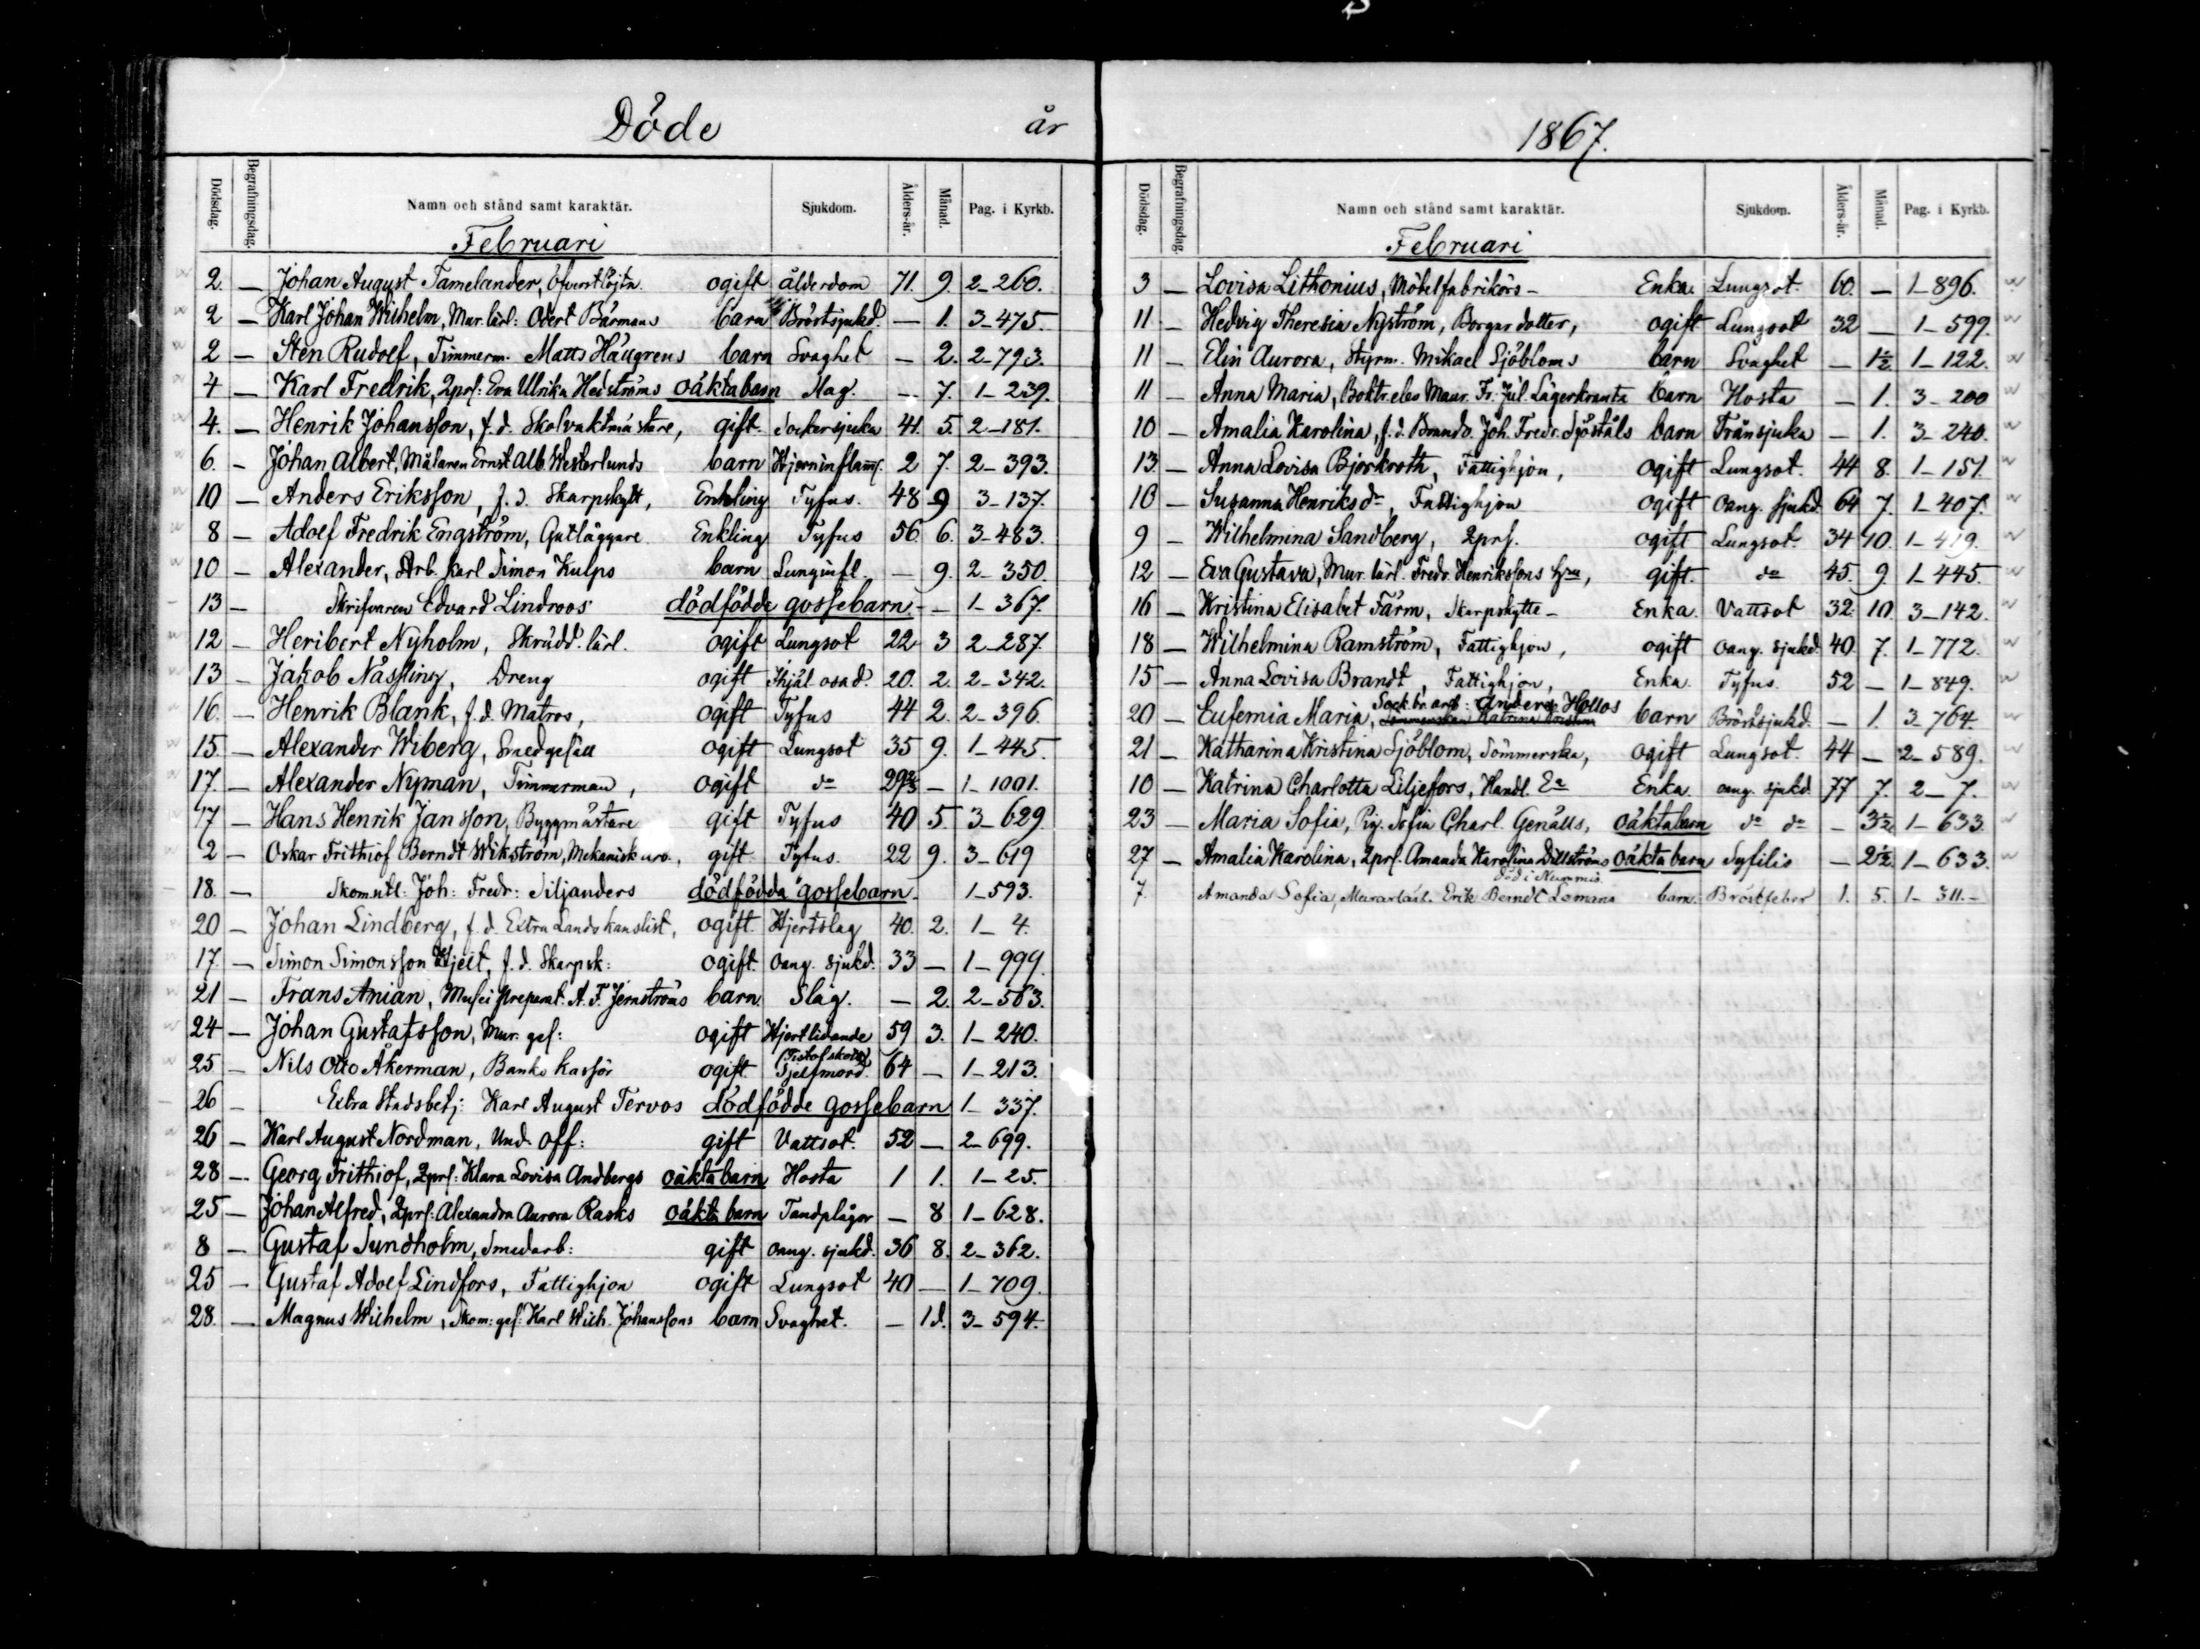 Döde år
Dödsdag. Begrafningsdag. Namn och stånd samt karaktär. Sjukdom. Ålders-år. Månad. Pag. i Kyrkb.
Februari
2. — Johan August Tamelander, Öfverstlöjtn. ogift ålderdom 71. 9. 2–260.
2 — Karl Johan Wilhelm, Mur. lärl: Odert Bärmans barn Bröstsjukd. — 1. 3–475.
2 — Sten Rudolf, Timmerm. Matts Häggrens barn Svaghet — 2. 2–793.
4 — Karl Fredrik, Qprs: Eva Ulrika Hedströms oäkta barn Slag. — 7. 1–239.
4. — Henrik Johansson, f.d. Skolvaktmästare, gift. Sockersjuka 41. 5. 2–181.
6. — Johan Albert, Målaren Ernst Alb. Westerlunds barn Hjerninflamm. 2 7. 2–393.
10 — Anders Eriksson, f.d. Skarpskytt, Enkling Tyfus. 48 9 3–137.
8 — Adolf Fredrik Engström, Gatläggare Enkling Tyfus 56. 6. 3–483.
10 — Alexander, Arb. karl Simon Kulps barn Lunginfl. — 9. 2–350.
13 — Skrifvaren Edvard Lindroos dödfödde gossebarn. — 1–367.
12 — Heribert Nyholm, Skrädd. lärl. ogift Lungsot 22 3 2–287.
13 — Jakob Nässling, Dreng ogift Ihjäl osad. 20. 2. 2–342.
16. — Henrik Blank, f.d. Matros, ogift Tyfus 44 2. 2–396.
15. — Alexander Wiberg, Smedgesäll ogift Lungsot 35 9. 1–445.
17. — Alexander Nyman, Timmerman, ogift do 29 — 1–1001.
17 — Hans Henrik Jansson, Byggmästare gift Tyfus 40 5. 3–629
2 — Oskar Frithiof Berndt Wikström, Mekanisk arb., gift Tyfus. 22 9. 3–619
18. — Skomstl. Joh: Fredr: Siljanders dödfödda gossebarn. 1–593.
20 — Johan Lindberg, f.d. Extra Landskanslist, ogift. Hjertslag 40. 2. 1–4.
17. — Simon Simonsson Hjelt, f.d. Skarpsk: ogift. oang. sjukd. 33 — 1–999.
21 — Frans Anian, Musei preparat. A. F. Jernströms barn Slag. — 2. 2–563.
24 — Johan Gustafsson, Mur. ges: ogift Hjertlidande 59 3. 1–240.
25 — Nils Otto Åkerman, Banks kassör ogift. (Pistolskott) Sjelfmord. 64 — 1–213.
26 — Extra Stadsbetj: Karl August Tervos dödfödde gossebarn 1–337.
26 — Karl August Nordman, Und. Off: gift Vattsot. 52 — 2–699.
28 — Georg Frithiof, Qprs: Klara Lovisa Andbergs oäkta barn Hosta 1 1. 1–25.
25 — Johan Alfred, Qprs. Alexandra Aurora Rasks oäkta barn Tandplågor — 8 1–628.
8 — Gustaf Sundholm, Smedarb: gift oang. sjukd. 36 8. 2–362.
25 — Gustaf Adolf Lindfors, Fattighjon ogift Lungsot 40 — 1–709.
28. — Magnus Wilhelm, Skom: ges: Karl Wilh. Johanssons barn Svaghet. — 1d. 3–594.
1867.
Dödsdag. Begrafningsdag. Namn och stånd samt karaktär. Sjukdom. Ålders-år. Månad. Pag. i Kyrkb.
Februari
3 — Lovisa Lithonius, Möbelfabrikörs– Enka. Lungsot. 60. — 1–896.
11 — Hedvig Theresia Nyström, Borgardotter, ogift Lungsot 32 — 1–599.
11 — Elin Aurora, Styrm. Mikael Sjöbloms barn Svaghet — 1½ 1–122.
11 — Anna Maria, Boktr. elev Maur. Fr. Jul. Lagerkrants barn Hosta — 1. 3–200
10 — Amalia Karolina, f.d. Brands. Joh. Fredr. Sjöståls barn Tränsjuka — 1. 3–240.
13 — Anna Lovisa Bjorkroth, Fattighjon, ogift Lungsot. 44 8. 1–151.
10 — Susanna Henriksdr, Fattighjon ogift oang. sjukd. 64 7. 1–407.
9 — Wilhelmina Sandberg, Qprs. ogift Lungsot. 34 10. 1–419.
12 — Eva Gustava, Mur. lärl. Fredr. Henrikssons hru, gift. do 45. 9. 1–445.
16 — Kristina Elisabet Färm, Skarpskytte– Enka. Vattsot 32. 10. 3–142.
18 — Wilhelmina Ramström, Fattighjon, ogift oang. sjukd. 40. 7. 1–772.
15 — Anna Lovisa Brandt, Fattighjon, Enka. Tyfus. 52 — 1–849.
Sock. br. arb: Anders Hollos
20 — Eufemia Maria, Sömmerskan Katrina Kristina barn Bröstsjukd. — 1. 3–764.
21 — Katharina Kristina Sjöblom, Sömmerska, ogift Lungsot. 44 — 2–589.
10 — Katrina Charlotta Liljefors, Handl. Ea Enka. oang. sjukd. 77 7. 2–7.
23 — Maria Sofia, Pig. Sofia Charl. Genälls, oäkta barn do do — 3½ 1–633.
27 — Amalia Karolina, Qprs. Amanda Karolina Dillströms oäkta barn Syfilis — 2½. 1–633.
död i Nummis
7. Amanda Sofia, Murarlärl. Erik Berndt Lomans barn. Bröstfeber 1. 5. 1–311.–